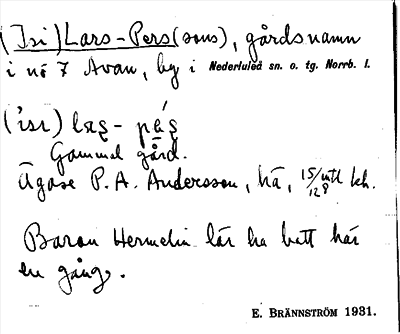 (Isi) Lars-Pers(sons), gårdsnamn
i nö 7 Avan, by i Nederluleå sn. o. tg. Norrb. l.
Gammal gård.
Ägare P. A. Andersson, hä, 15/128 mtl
Baron Hermelin lär ha bott här
en gång.
E. BRÄNNSTRÖM 1931.